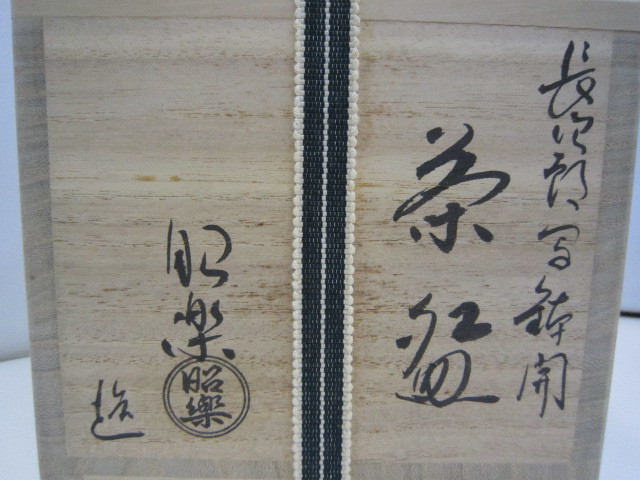 長次郎写鉢開
茶碗
昭楽
造
昭樂